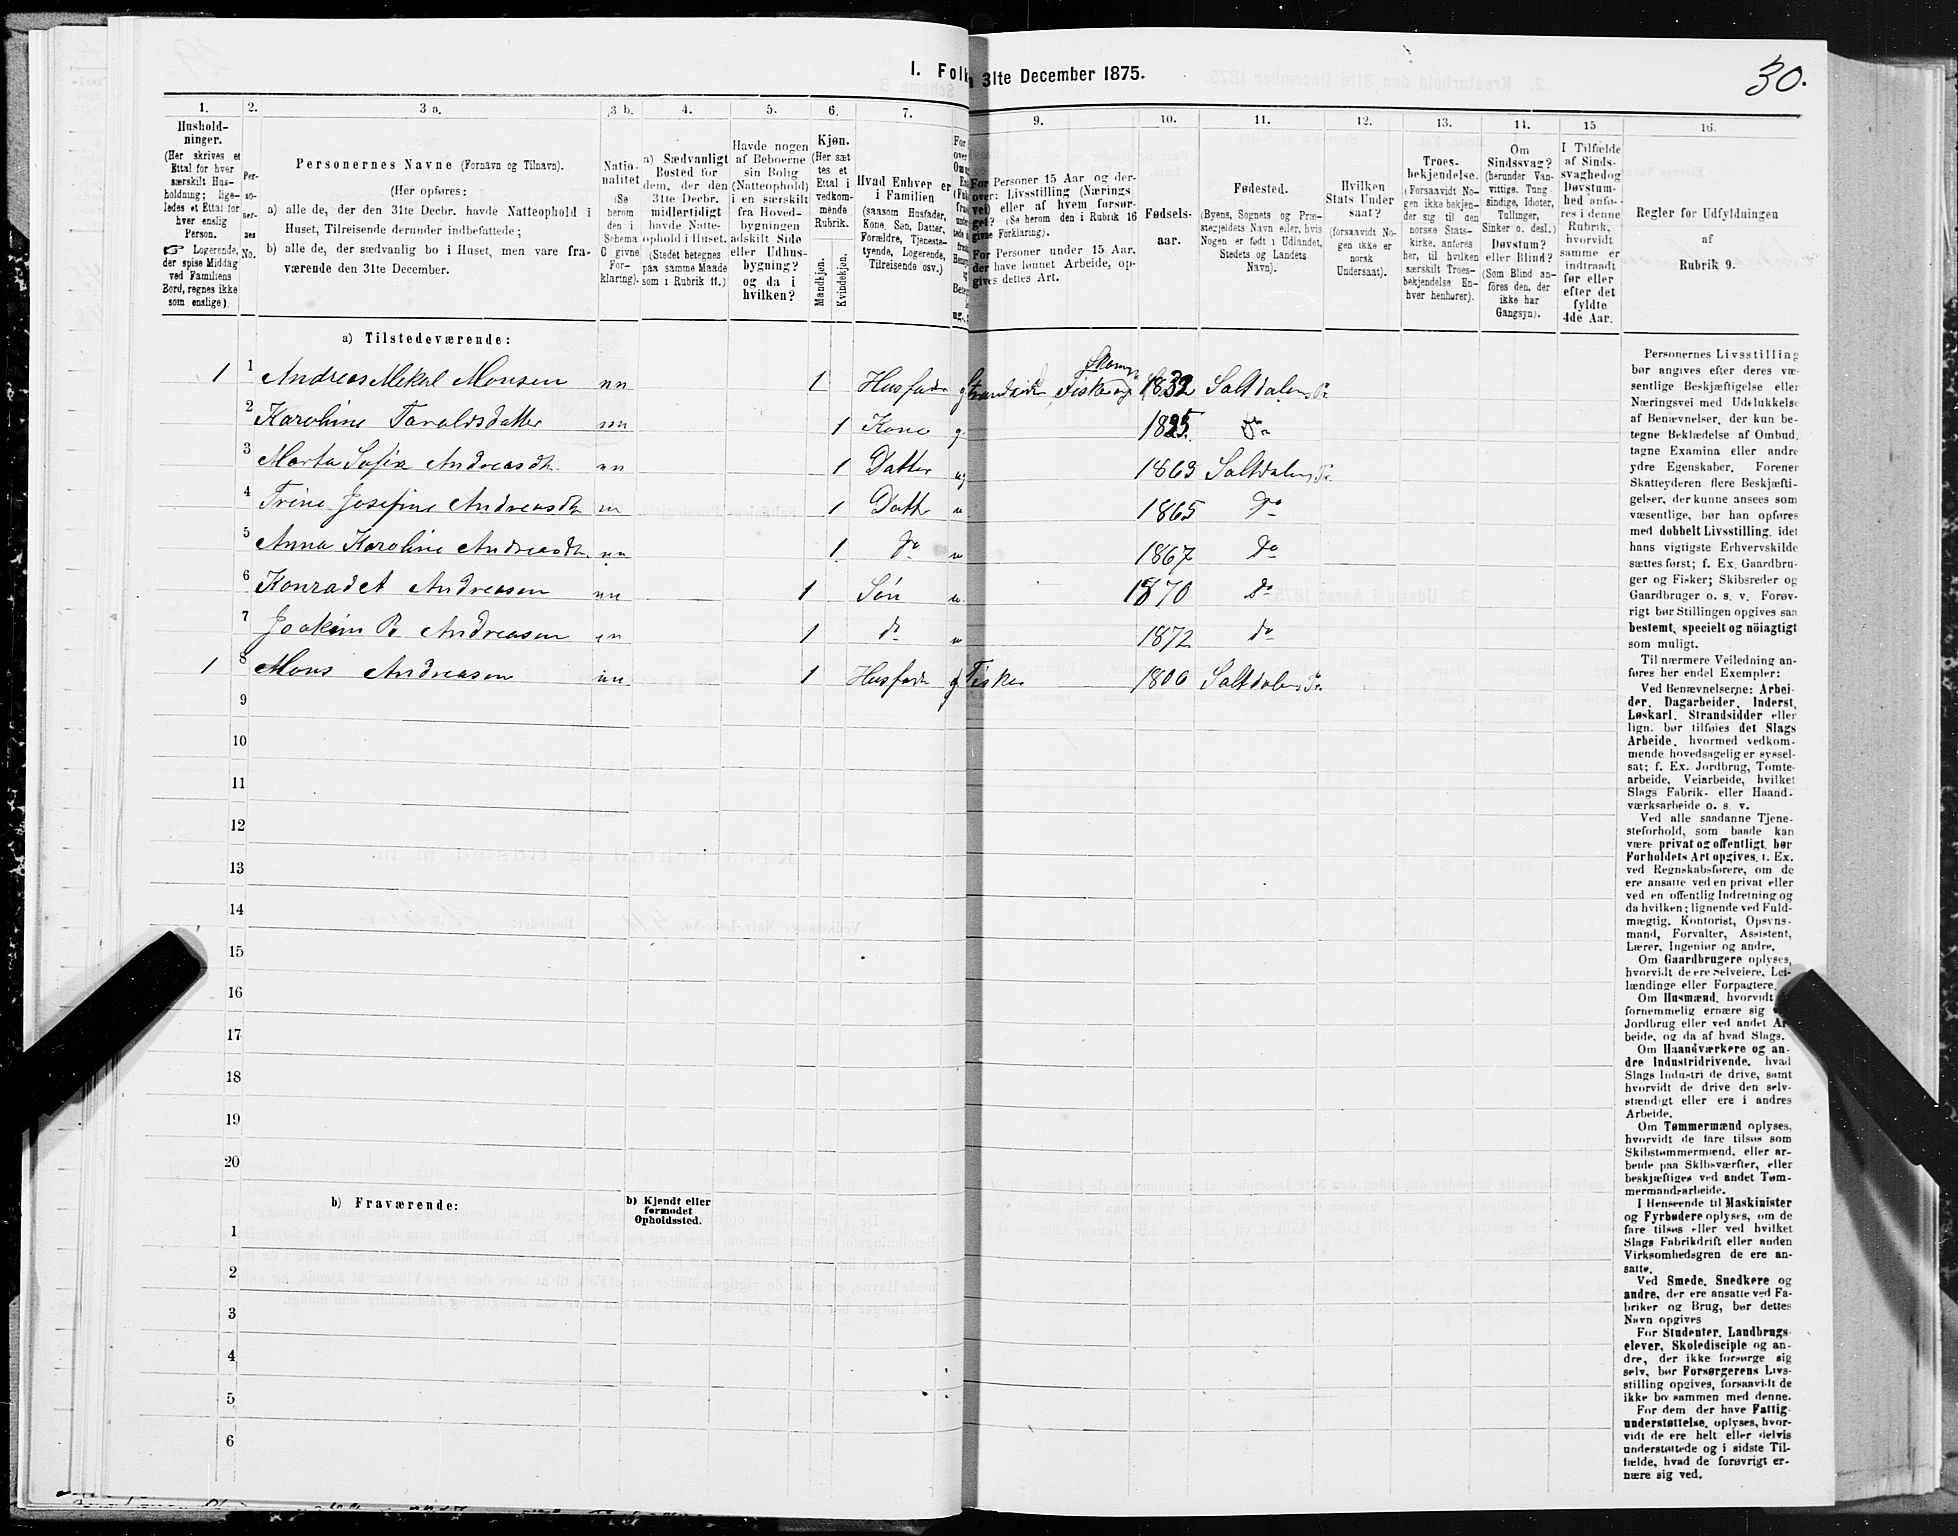 I. Folk
31te December 1875.
30.
1. 2. 3 a. 3 b. 4. 5. 6. 7. 9. 10. 11. 12. 13. 14. 15 16.
Hushold-
ninger.
(Her skrives et
Ettal for hver
særskilt Hus-
holdning; lige-
ledes et Ettal for
hver enslig
Person.
☞ Logerende,
der spise Middag
ved Familiens
Bord, regnes ikke
som enslige).
Per-
so-
ner-
nes
No.
Personernes Navne (Fornavn og Tilnavn).
(Her opføres:
a) alle de, der den 31te Decbr. havde Natteophold i
Huset, Tilreisende derunder indbefattede;
b) alle de, der sædvanlig bo i Huset, men vare fra-
værende den 31te December.
Natio-
nalitet
(Se
herom
den i
Schema
C givne
For-
klaring).
a) Sædvanligt
Bosted for
dem, der den
31te Decbr.
midlertidigt
havde Natte-
ophold i Huset.
(Stedet betegnes
paa samme Maade
som i Rubrik 11.)
Havde nogen
af Beboerne
sin Bolig
(Natteophold)
i en særskilt
fra Hoved-
bygningen
adskilt Side
eller Udhus-
bygning?
og da i
hvilken?
Kjøn.
(Her sæt
tes et
Ettal i
vedkom-
mende
Rubrik.
Mandkjøn.
Kvindekjøn.
Hvad Enhver er
i Familien
(saasom Husfader,
Kone, Søn, Datter,
Forældre, Tjeneste-
tyende, Logerende,
Tilreisende osv.)
Personer 15 Aar og der-
over: Livsstilling (Nærings
vei) eller af hvem forsør-
get? (Se herom den i Rubrik 16
givne Forklaring).
Personer under 15 Aar,
der have lønnet Arbeide, op-
gives dettes Art.
Fødsels-
aar.
Fødested.
(Byens, Sognets og Præ-
stegjeldets Navn eller, hvis
Nogen er født i Udlandet,
Stedets og Landets
Navn).
Hvilken
Stats Under
saat?
(forsaavidt No-
gen ikke er
norsk
Undersaat).
Troes-
bekjendelse.
(Forsaavidt No-
gen ikke bekjen-
der sig til den
norske Stats-
kirke, anføres
her, til hvilken
særskilt Troes-
bekjendelse En-
hver henhører).
Om
Sindssvag?
(herunder Van-
vittige, Tung-
sindige, Idioter,
Tullinger,
Sinker o. desl.)
Døvstum?
eller Blind?
(Som Blind an-
føres den, der
ikke har
Gangsyn).
I Tilfælde
af Sinds-
svaghed og
Døvstum-
hed anfø-
res i denne
Rubrik,
hvorvidt
samme er
indtraadt
før eller
efter det
fyldte
4de Aar.
Regler for Udfyldningen
af
Rubrik 9.
a) Tilstedeværende:
1 1 Andreas Mikal Monsen nn 1 Husfader g Strandsidder, Fisker og 1832 Saltdalens Pr
2 Karoline Taraldsdatter nn 1 Kone g. 1825. Do
3 Marta Sofie Andreasdtr. nn 1 Datter ug 1863 Saltdalens Pr.
4 Trine Josefine Andreasdtr nn 1 Datter u 1865 Do
5 Anna Karoline Andreasdtr. nn 1 Do u 1867 Do
6 Konradet Andreasen nn 1 Søn u. 1870 Do
7 Joakim P. Andreasen nn 1 do u 1872 do
1 8 Mons Andreasen nn 1 Husfader g Fisker 1800 Saltdalens Pr
9
10
11
12
13
14
15
16
17
18
19
20
b) Fraværende:
b) Kjendt eller
formodet
Opholdssted.
1
2
3
4
5
6
Personernes Livsstilling
bør angives efter deres væ-
sentlige Beskjæftigelse eller
Næringsvei med Udelukkelse
af Benævnelser, der kun be-
tegne Beklædelse af Ombud,
tagne Examina eller andre
ydre Egenskaber. Forener
Skatteyderen flere Beskjæfti-
gelser, der kunne ansees som
væsentlige, bør han opføres
med dobbelt Livsstilling, idet
hans vigtigste Erhvervskilde
sættes først; f. Ex. Gaardbru-
ger og Fisker; Skibsreder og
Gaardbruger o. s. v. Forøv-
rigt bør Stillingen opgives saa
bestemt, specielt og nøiagtigt
som muligt.
Til nærmere Veiledning an-
føres her endel Exempler:
Ved Benævnelserne: Arbei-
der, Dagarbeider, Inderst,
Løskarl, Strandsidder eller
lign. bør tilføies det Slags
Arbeide, hvormed vedkom-
mende hovedsagelig er syssel-
sat; f. Ex. Jordbrug, Tomte-
arbeide, Veiarbeide, hvilket
Slags Fabrik- eller Haand-
værksarbeide o. s. v.
Ved alle saadanne Tjene-
steforhold, som baade kan
være privat og offentligt, bør
Forholdets Art opgives, t. Ex.
ved Regnskabsførere, om de
ere ansatte ved en privat eller
ved en offentlig Indretning og
da hvilken; lignende ved Fuld-
mægtig, Kontorist, Opsyns-
mand, Forvalter, Assistent,
Lærer, Ingeniør og andre.
Om Gaardbrugere oplyses,
hvorvidt de ere Selveiere, Lei-
lændinge eller Forpagtere.
Om Husmænd, hvorvidt
fornemmelig ernære sig
Jordbrug eller ved andet Ar-
beide, og da af hvad Slags.
Om Haandværkere og an-
dre Industridrivende, hvad
Slags Industri de drive, samt
hvorvidt de drive den selv-
stændigt eller ere i andres
Arbeide.
Om Tømmermænd oplyses,
hvorvidt de fare tilsøs som
Skibstømmermænd, eller ar-
beide paa Skibsværfter, eller
beskjæftiges ved andet Tøm-
mermandsarbeide.
I Henseende til Maskinister
og Fyrbødere oplyses, om de
fare tilsøs eller ved hvilket
Slags Fabrikdrift eller anden
Virksomhedsgren de ere an-
satte.
Ved Smede, Snedkere og
andre, der ere ansatte ved Fa-
briker og Brug, bør dettes
Navn opgives
For Studenter, Landbrugs-
elever, Skoledisciple og an-
dre, der ikke forsørge sig
selv, bør Forsørgerens Livs-
stilling opgives, forsaavidt de
ikke bo sammen med denne.
For dem der have Fattig-
understøttelse, oplyses, hvor-
vidt de ere helt eller delvis
understøttede og i sidste Til-
fælde, hvad de forøvrigt er-
nære sig ved.